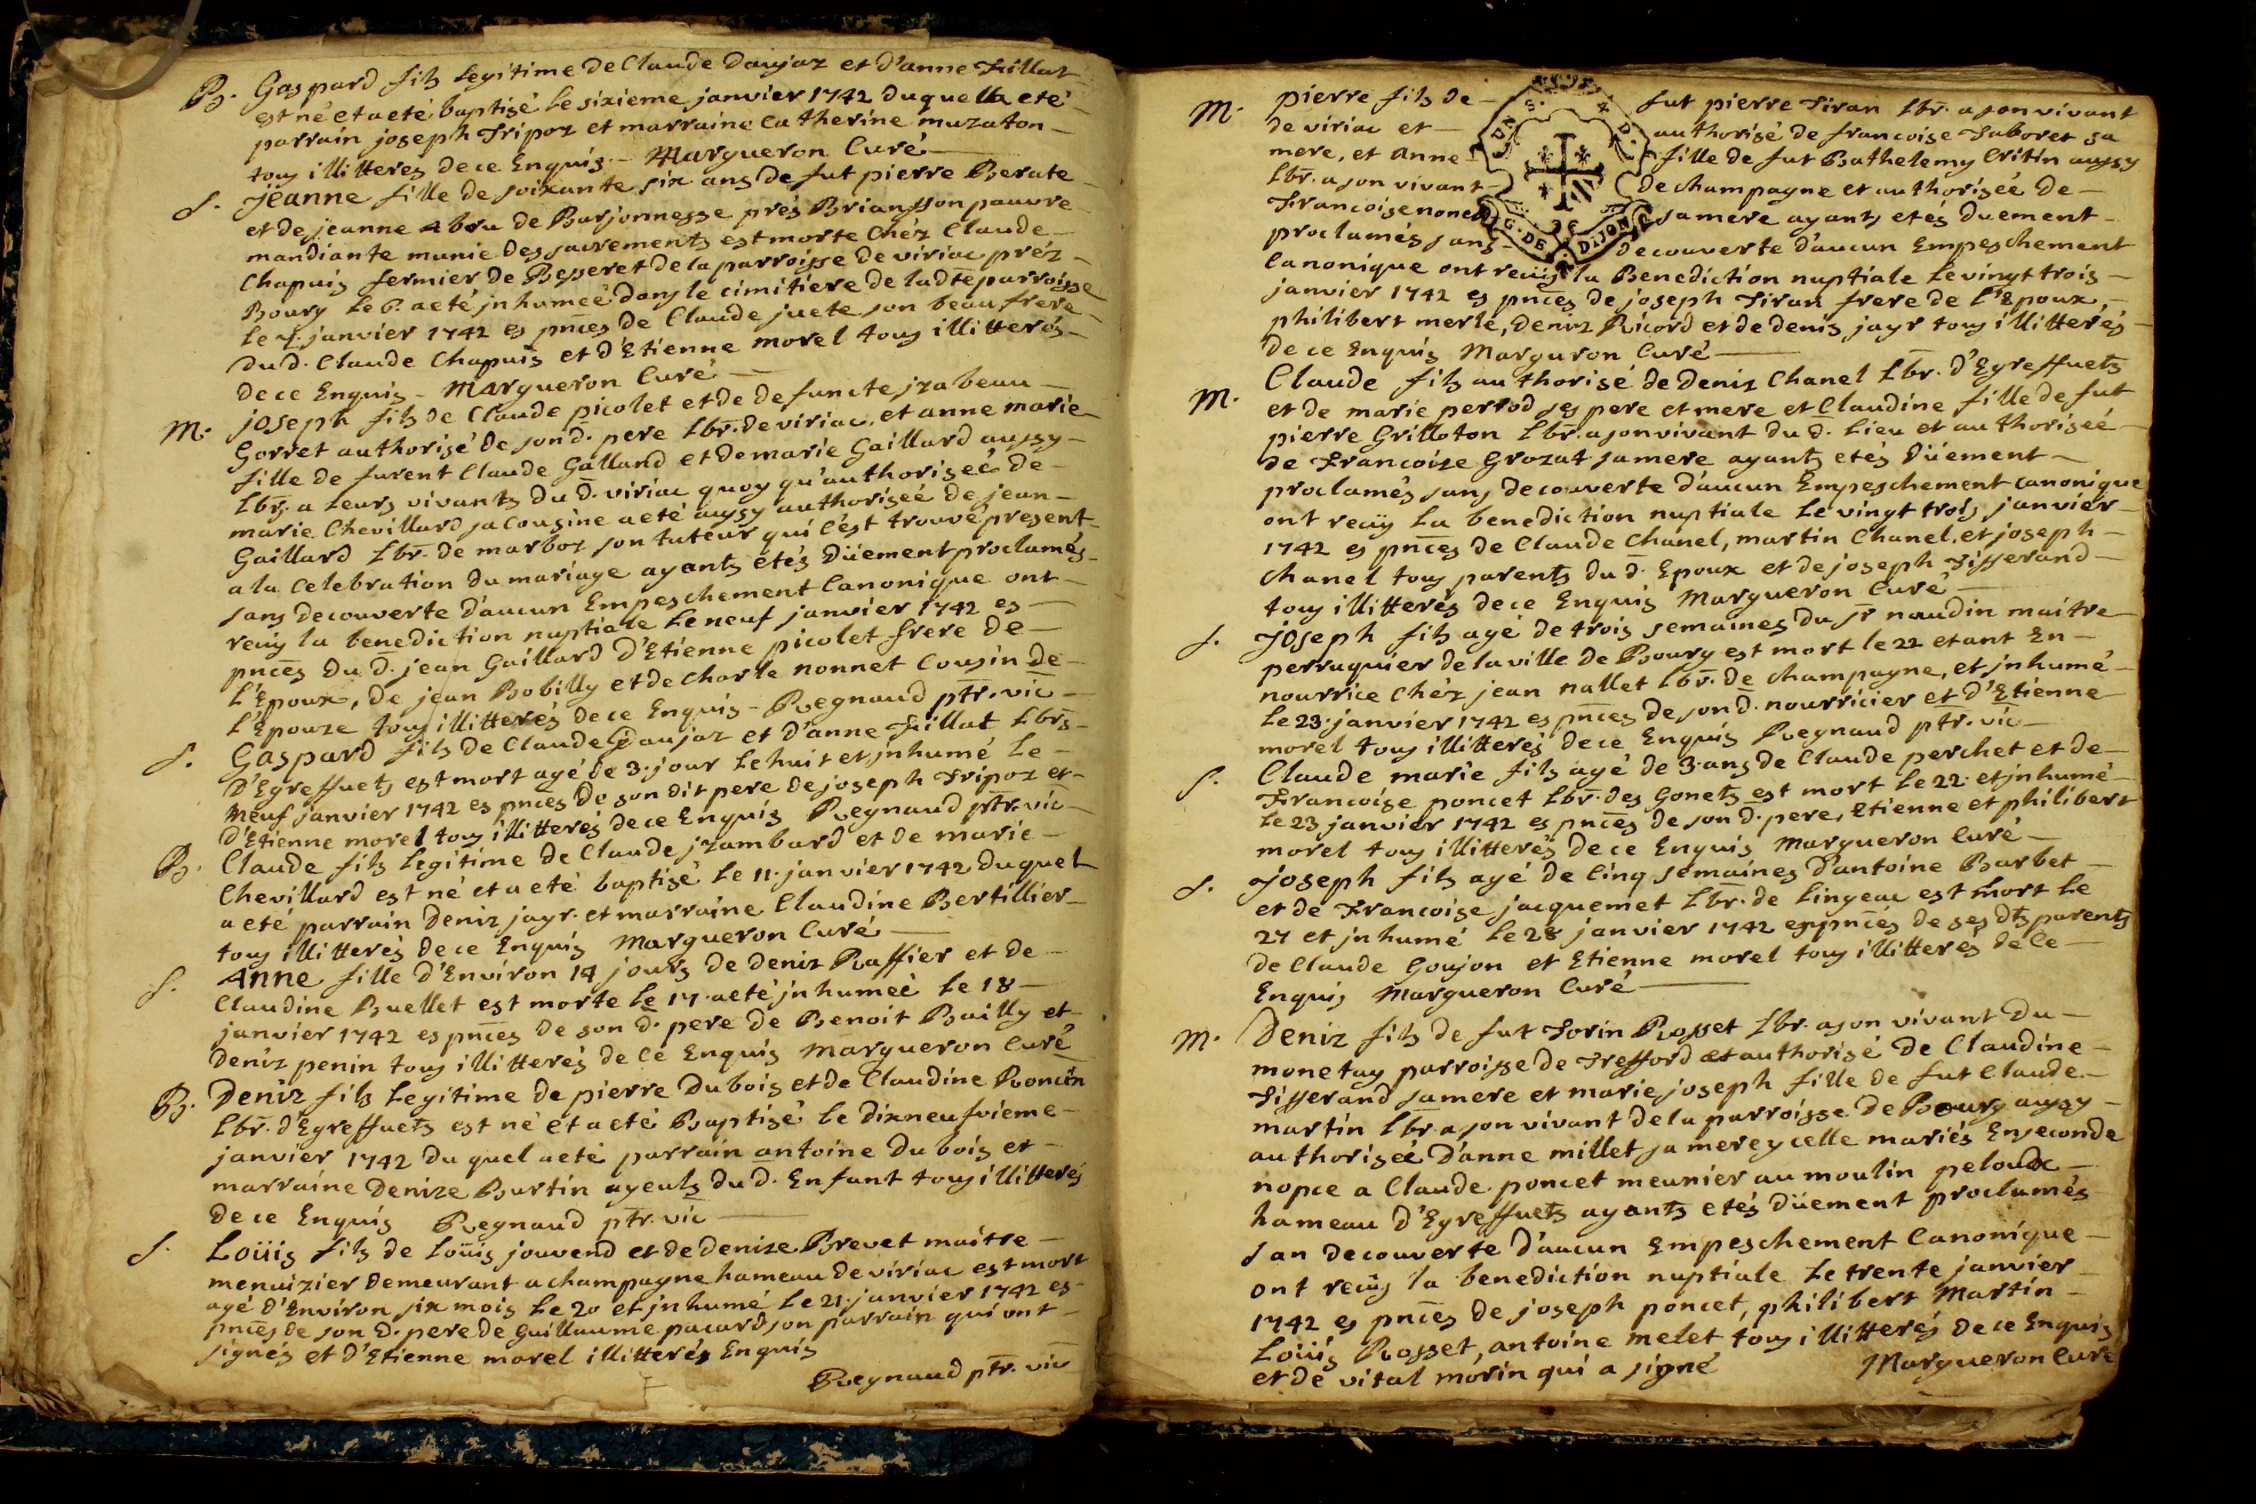 B. Gaspard fils legitime de Claude Daujaz et d'anne Fillat
est né et a eté baptisé le sixieme janvier 1742 duquel a eté
parrain joseph Tripoz et marraine Catherine muzaton
tous illitterés de ce Enquis. Margueron Curé
S. Jeanne fille de soixante six ans de fut pierre Berate
et de jeanne Abru de Burjonnesse prés Briansson pauvre
mandiante munie des sacrements est morte Chéz Claude
Chapuis fermier de Besseret de la parroisse de viriac préz
Bourg le 6. a eté jnhumeé dans le cimitiere de ladte parroisse
le 7. janvier 1742 es pnces de Claude juete son beau frere
du d. Claude Chapuis et d'Etienne morel tous illitterés
de ce Enquis - Margueron Curé
M. joseph fils de Claude picolet et de defuncte jzabeau
Gorret authorisé de son d. pere Lbr. de viriac, et anne marie
fille de furent Claude Galland et de marie Gaillard aussy
Lbrs. a leurs vivants du d. viriac quoy qu'authoriseé de
marie Chevillard sa Cousine a eté aussy authoriseé de jean
Gaillard Lbr. de marboz son tuteur qui c'ést trouvé present
a la Celebration du mariage ayants étés düement proclamés
sans decouverte d'aucun Empeschement Canonique ont
reçüs la benediction nuptiale le neuf janvier 1742 es
pnces du d. jean Gaillard d'Etienne picolet frere de
l'Epoux, de jean Bobilly et de charle nonnet Cousin de
l'Epouze tous illitterés de ce Enquis - Regnaud ptr. vic
S. Gaspard fils de Claude Daujaz et d'anne Fillat Lbrs
d'Egreffuets est mort agé de 3. jour le huit et jnhumé le
neuf janvier 1742 es pnces de son dit pere de joseph Tripoz et
d'Etienne morel tous illitterés de ce Enquis Regnaud ptr. vic
B. Claude fils legitime de Claude jzambard et de marie
Chevillard est né et a eté baptisé le 11. janvier 1742 duquel
a eté parrain Deniz jayr. et marraine Claudine Bertillier
tous illitterés de ce Enquis Margueron Curé
S. Anne fille d'Environ 14 jours de deniz Raffier et de
Claudine Buellet est morte le 17. a eté jnhumeé le 18
janvier 1742 es pnces de son d. pere de Benoit Bailly et
Deniz penin tous illitterés de Ce Enquis Margueron Curé
B. Deniz fils legitime de pierre Dubois et de Claudine Roncin
Lbr. d'Egreffuets est né et a eté Baptisé le dixneufvieme
janvier 1742 du quel a eté parrain antoine Dubois et
marraine Denize Burtin ayeuls du d. Enfant tous illitterés
de ce Enquis Regnaud ptr. vic
S. Loüis fils de Loüis jouvend et de denize Brevet maitre
menuizier demeurant a champagne hameau de viriac est mort
agé d'Environ six mois le 20 et jnhumé le 21. janvier 1742 es
pnces de son d. pere de Guillaume pacard son parrain qui ont
signés et d'Etienne morel illitterés Enquis
Regnaud ptr. vic
M. pierre fils de fut pierre Tiran Lbr. a son vivant
de viriac et authorisé de francoise Taboret sa
mere, et Anne fille de fut Bathelemy Critin aussy
Lbr. a son vivant de champagne et authoriseé de
Francoise nonet sa mere ayants etés duement
proclamés sans decouverte d'aucun Empeschement
G. DE DIJON
Canonique ont reçüs la Benediction nuptiale le vingt trois
janvier 1742 es pnces de joseph Tiran frere de l'Epoux,
philibert merle, Deniz Ricord et de denis jayr tous illitterés
de ce Enquis Marguron Curé
M. Claude fils authorisé de Deniz Chanel Lbr. d'Egreffuets
et de marie perrod ses pere et mere et Claudine fille de fut
pierre Grilloton Lbr. a son vivant du d. Lieu et authoriseé
de Francoize Grozat sa mere ayants etés düement
proclamés sans decouverte d'aucun Empeschement canonique
ont reçü la benediction nuptiale le vingt trois janvier
1742 es pnces de Claude Chanel, martin Chanel, et joseph
Chanel tous parents du d. Epoux et de joseph Tisserand
tous illitterés de ce Enquis Margueron Curé
S. Joseph fils agé de trois semaines du sr naudin maitre
perruquier de la ville de Bourg est mort le 22 etant En
nourrice Chéz jean nallet Lbr. de champagne, et jnhumé
le 23. janvier 1742 es pnces de son d. nourricier et d'Etienne
morel tous illitterés de ce Enquis Regnaud ptr. vic
S. Claude marie fils agé de 3. ans de Claude perchet et de
Francoise poncet Lbr. des Gonets est mort le 22. et jnhumé
le 23 janvier 1742 es pnces de son d. pere, Etienne et philibert
morel tous illitterés de ce Enquis Margueron Curé
S. Joseph fils agé de Cinq semaines d'antoine Barbet
et de Francoise jacquemet Lbr. de Lingeac est mort le
27 et jnhumé le 28 janvier 1742 es pnces de ses dts parents
de Claude Goujon et Etienne morel tous illitterés de Ce
Enquis Margueron Curé
M. Deniz fils de fut Torin Rosset Lbr. a son vivant du
monetay parroisse de Trefford et authorisé de Claudine
Tisserand sa mere et marie joseph fille de fut Claude
martin Lbr a son vivant de la parroisse de Bourg aussy
authoriseé d'anne millet sa mere ycelle mariés En seconde
nopce a Claude poncet meunier au moulin peloux
hameau d'Egreffuets ayants etés düement proclamés
san decouverte d'aucun Empeschement Canonique
ont reçüs la benediction nuptiale le trente janvier
1742 es pnces de joseph poncet, philibert Martin
Loüis Rosset, antoine melet tous illitterés de ce Enquis
et de vital morin qui a signé Margueron Curé